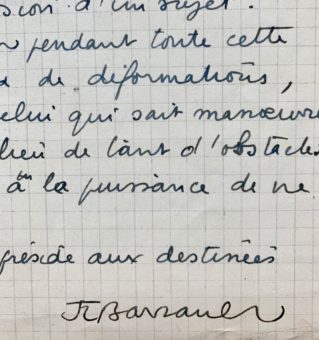 sion d'un sujet.
pendant toute cette
de déformations,
celui qui sait manœuvre
lieu de tant d'obstacles
à la puissance de ne
préside aux destinées
JLBarrault